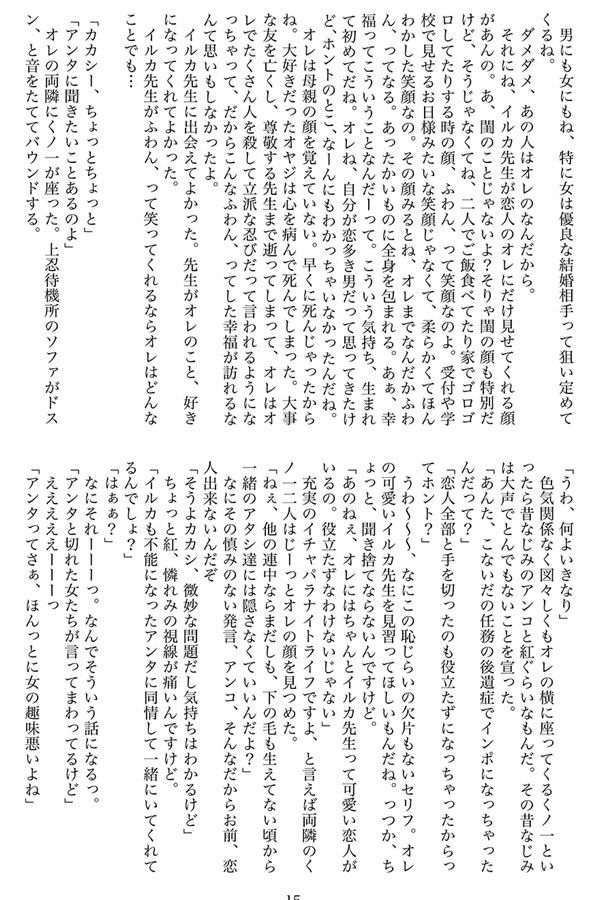 男にも女にもね、特に女は優良な結婚相手って狙い定めて
くるね。
ダメダメ、あの人はオレのなんだから。
それにね、イルカ先生が恋人のオレにだけ見せてくれる顔
があんの。あ、閨のことじゃないよ？そりゃ閨の顔も特別だ
けど、そうじゃなくてね、二人でご飯食べてたり家でゴロゴ
ロしてたりする時の顔、ふわん、って笑顔なのよ。受付や学
校で見せるお日様みたいな笑顔じゃなくて、柔らかくてほん
わかした笑顔なの。その顔みるとね、オレまでなんだかふわ
ん、ってなる。あったかいものに全身を包まれる。あぁ、幸
福ってこういうことなんだーって。こういう気持ち、生まれ
て初めてだね。オレね、自分が恋多き男だって思ってきたけ
ど、ホントのとこ、なーんにもわかっちゃいなかったんだね。
オレは母親の顔を覚えていない。早くに死んじゃったから
ね。大好きだったオヤジは心を病んで死んでしまった。大事
な友を亡くし、尊敬する先生まで逝ってしまって、オレはオ
レでたくさん人を殺して立派な忍びだって言われるようにな
っちゃって、だからこんなふわん、ってした幸福が訪れるな
んて思いもしなかったよ。
イルカ先生に出会えてよかった。先生がオレのこと、好き
になってくれてよかった。
イルカ先生がふわん、って笑ってくれるならオレはどんな
ことでも…
「カカシー、ちょっとちょっと」
「アンタに聞きたいことあるのよ」
オレの両隣にくノ一が座った。上忍待機所のソファがドス
ン、と音をたててバウンドする。
「うわ、何よいきなり」
色気関係なく図々しくもオレの横に座ってくるくノ一とい
ったら昔なじみのアンコと紅ぐらいなもんだ。その昔なじみ
は大声でとんでもないことを宣った。
「あんた、こないだの任務の後遺症でインポになっちゃった
んだって？」
「恋人全部と手を切ったのも役立たずになっちゃったからっ
てホント？」
うわ〜〜〜、なにこの恥じらいの欠片もないセリフ。オレ
の可愛いイルカ先生を見習ってほしいもんだね。っつか、ち
ょっと、聞き捨てならないんですけど。
「あのねぇ、オレにはちゃんとイルカ先生って可愛い恋人が
いるの。役立たずなわけないじゃない」
充実のイチャパラナイトライフですよ、と言えば両隣のく
ノ一二人はじーっとオレの顔を見つめた。
「ねぇ、他の連中ならまだしも、下の毛も生えてない頃から
一緒のアタシ達には隠さなくていいんだよ？」
なにその慎みのない発言、アンコ、そんなだからお前、恋
人出来ないんだぞ
「そうよカカシ、微妙な問題だし気持ちはわかるけど」
ちょっと紅、憐れみの視線が痛いんですけど。
「イルカも不能になったアンタに同情して一緒にいてくれて
るんでしょ？」
「はぁぁ？」
なにそれーーーっ。なんでそういう話になるっ。
「アンタと切れた女たちが言ってまわってるけど」
えええええーーーっ
「アンタってさぁ、ほんっとに女の趣味悪いよね」
15